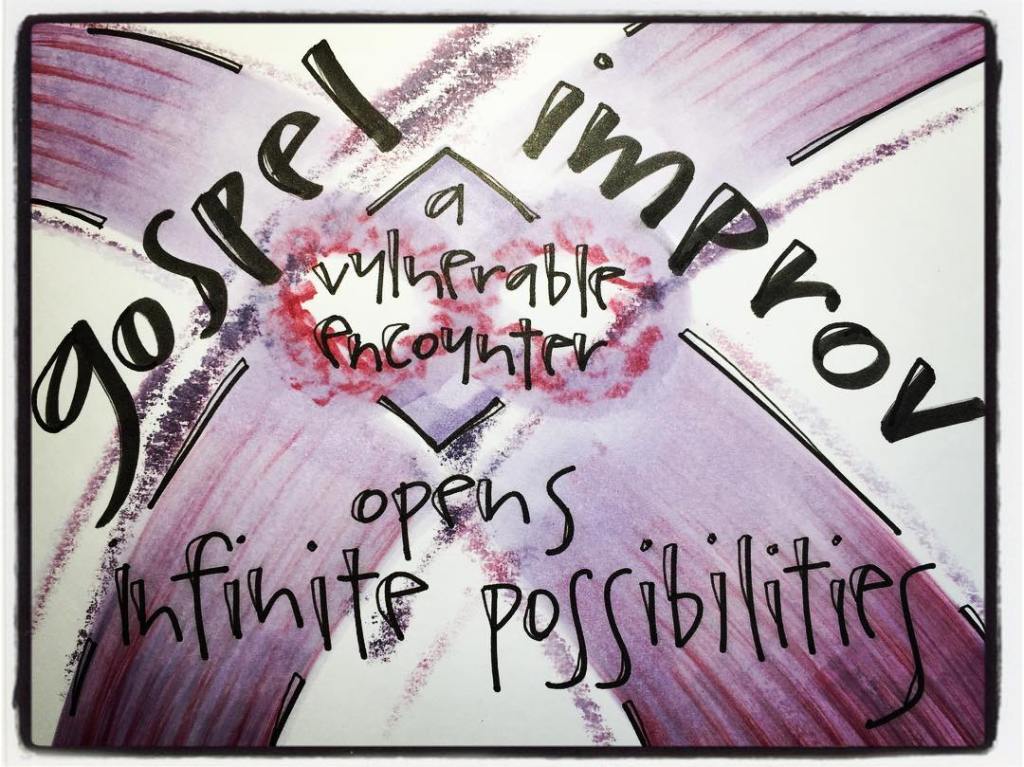 gospel improv
a
vulnerable
encounter
opens
infinite possibilities